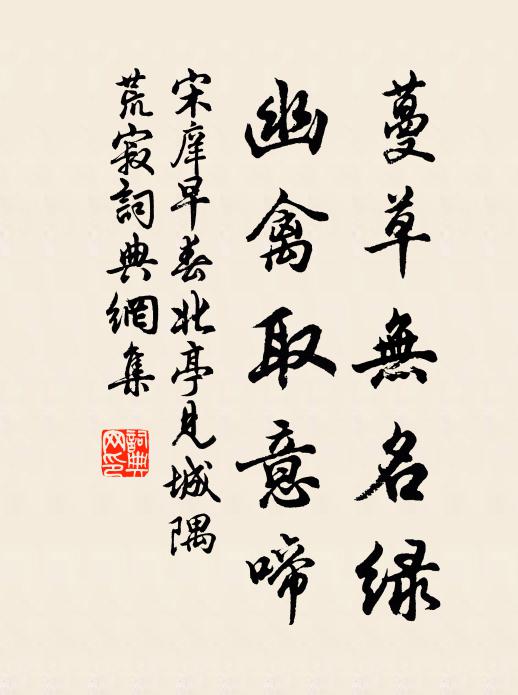 蔓草無名綠
幽禽取意啼
宋庠早春北亭見城隅
荒寂詞典網集
詞典网印